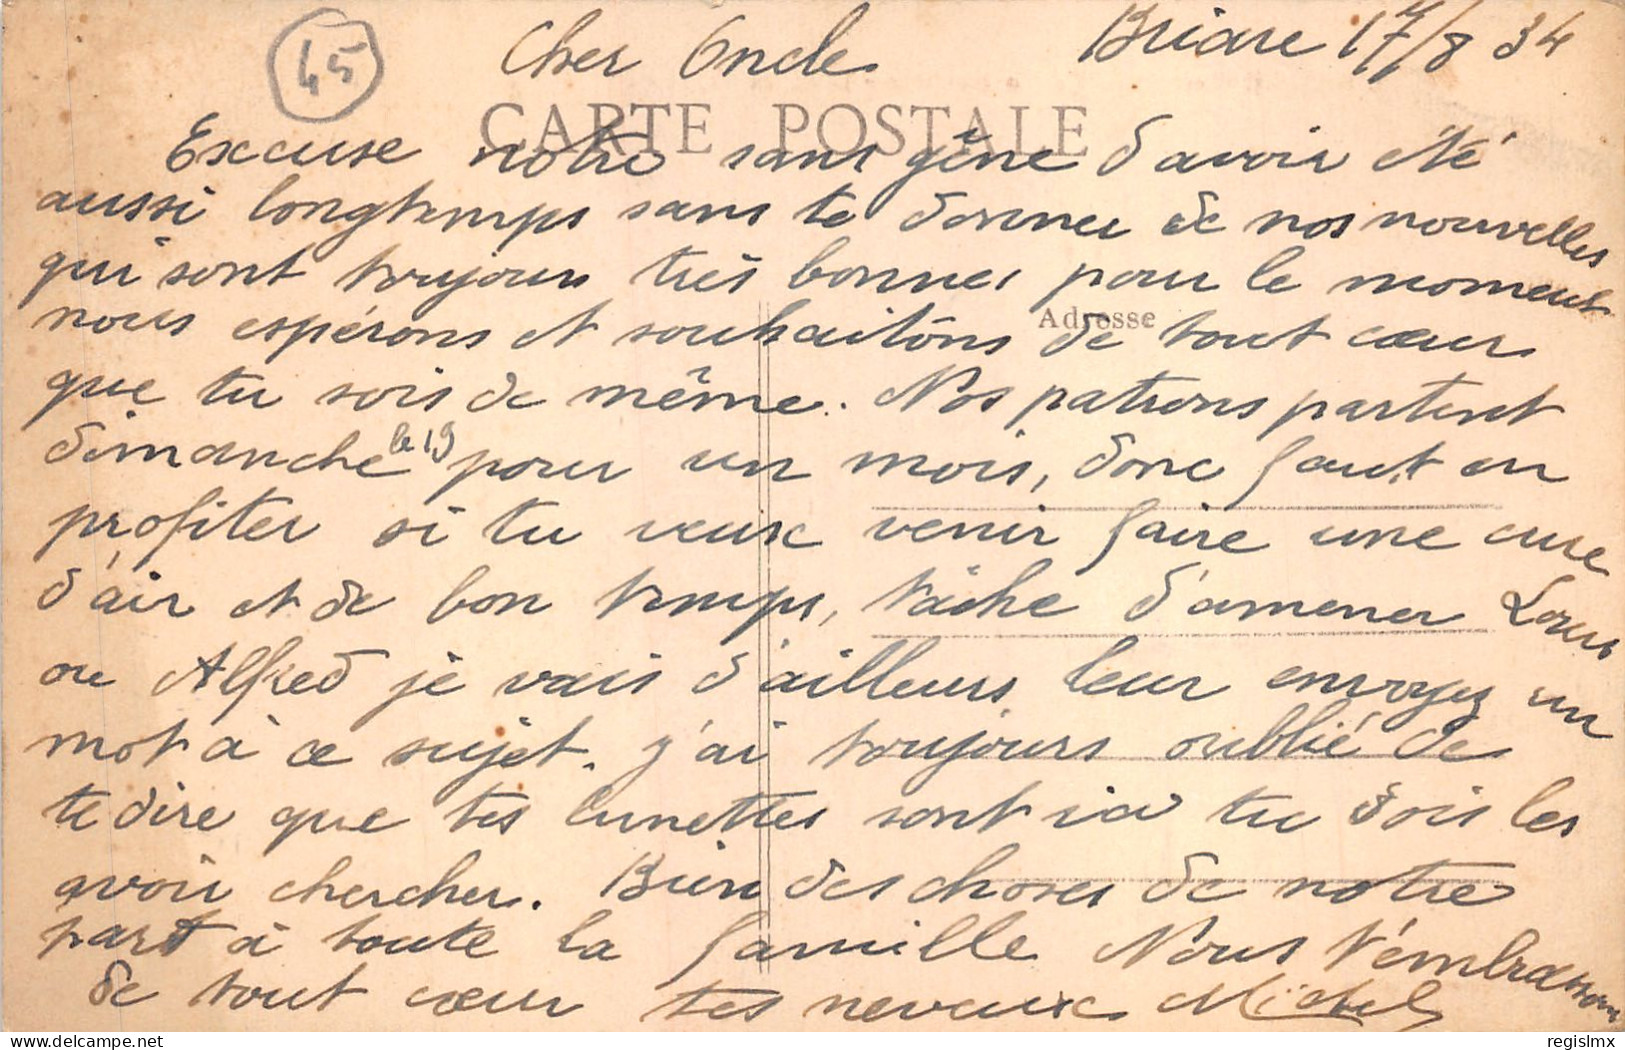 45
Cher Oncle
Briare 17/8 34
CARTE POSTALE
Excuse notre sans gêne d'avoir été
aussi longtemps sans te donner de nos nouvelles
qui sont toujours très bonnes pour le moment
nous espérons et souhaitons de tout cœur
Adresse
que tu sois de même. Nos patrons partent
dimanche le 19 pour un mois, donc faut en
profiter si tu veux venir faire une cure
d'air et de bon temps, tâche d'amener Louis
ou Alfred je vais d'ailleurs leur envoyez un
mot à ce sujet. j'ai toujours oublié de
te dire que tes lunettes sont ici tu dois les
avoir chercher. Bien des choses de notre
part à toute la famille Nous t'embrassons
de tout cœur tes neveux Michel
delcampe.net
regislmx